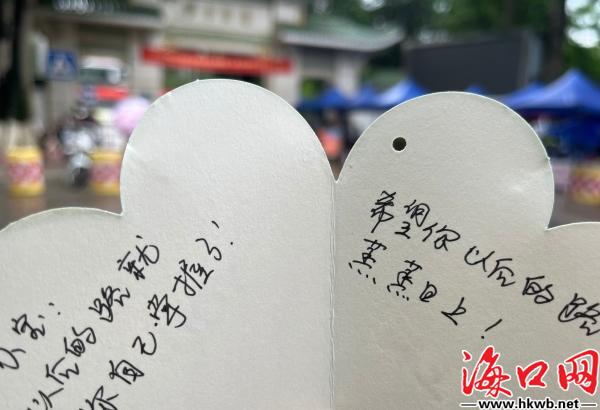 宝：
以后的路就
你自己掌握了！
希望你以后的路
蒸蒸日上！
海口网
www.hkwb.net